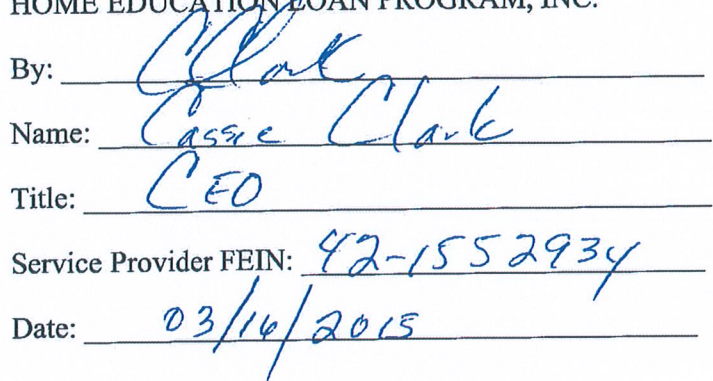 HOME EDUCATION LOAN PROGRAM, INC.
By: CClark
Name: Cassie Clark
Title: CEO
Service Provider FEIN: 42-1552934
Date: 03/16/2015